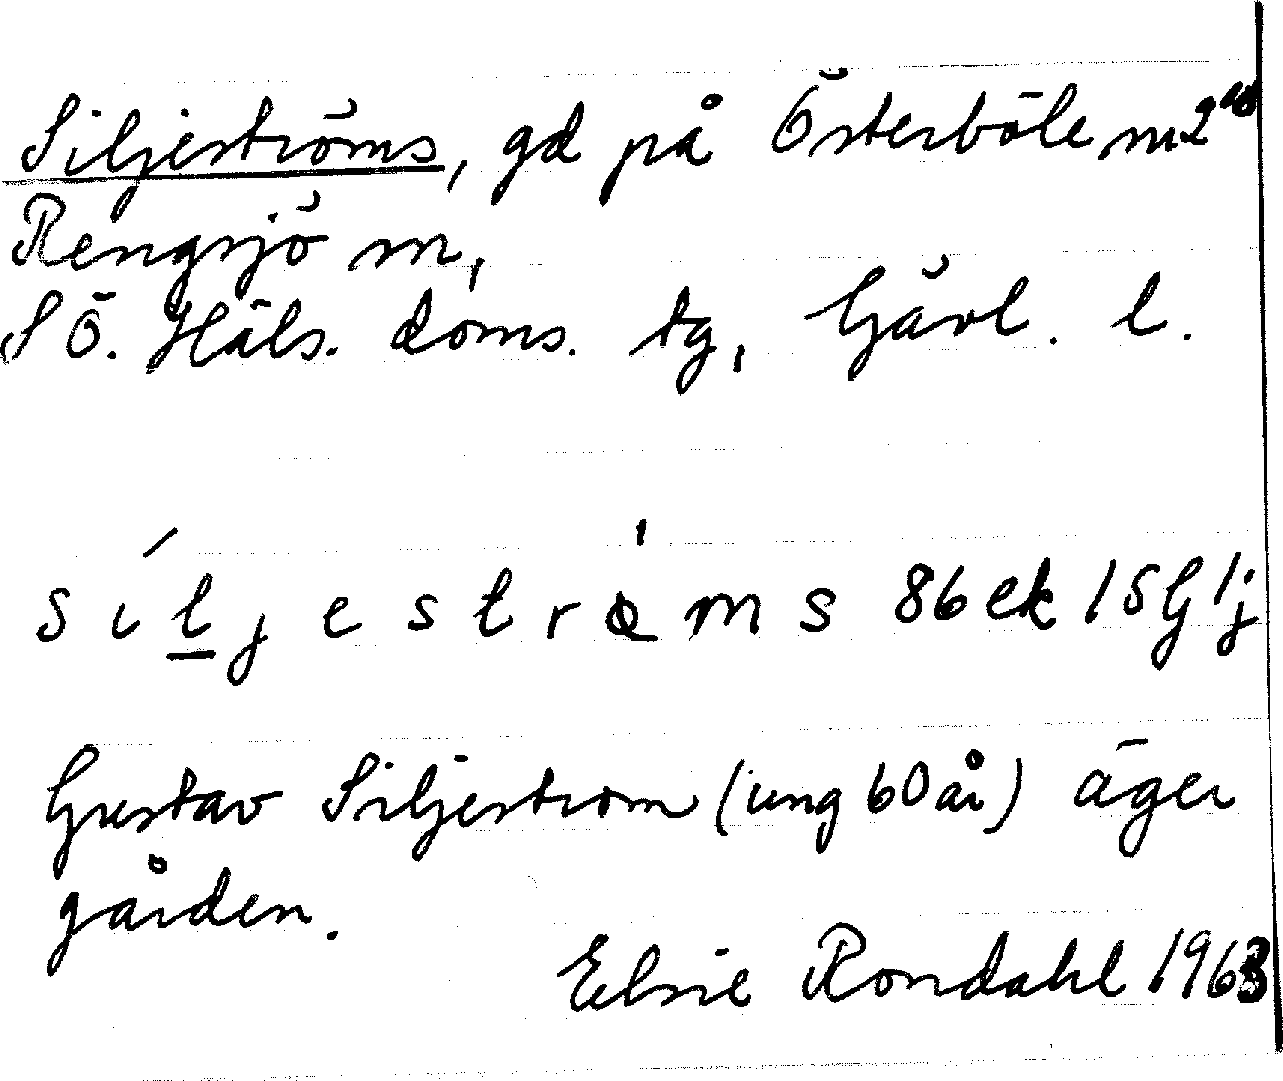 Siljeströms, gd på Österböle m 2
Rengsjö sn,
SÖ. Häls. doms. tg, Gävl. l.
síljestrøms 86 ek 15G 1j
Gustav Siljeström (ung 60 år) äger
gården.
Elsie Rondahl 1963